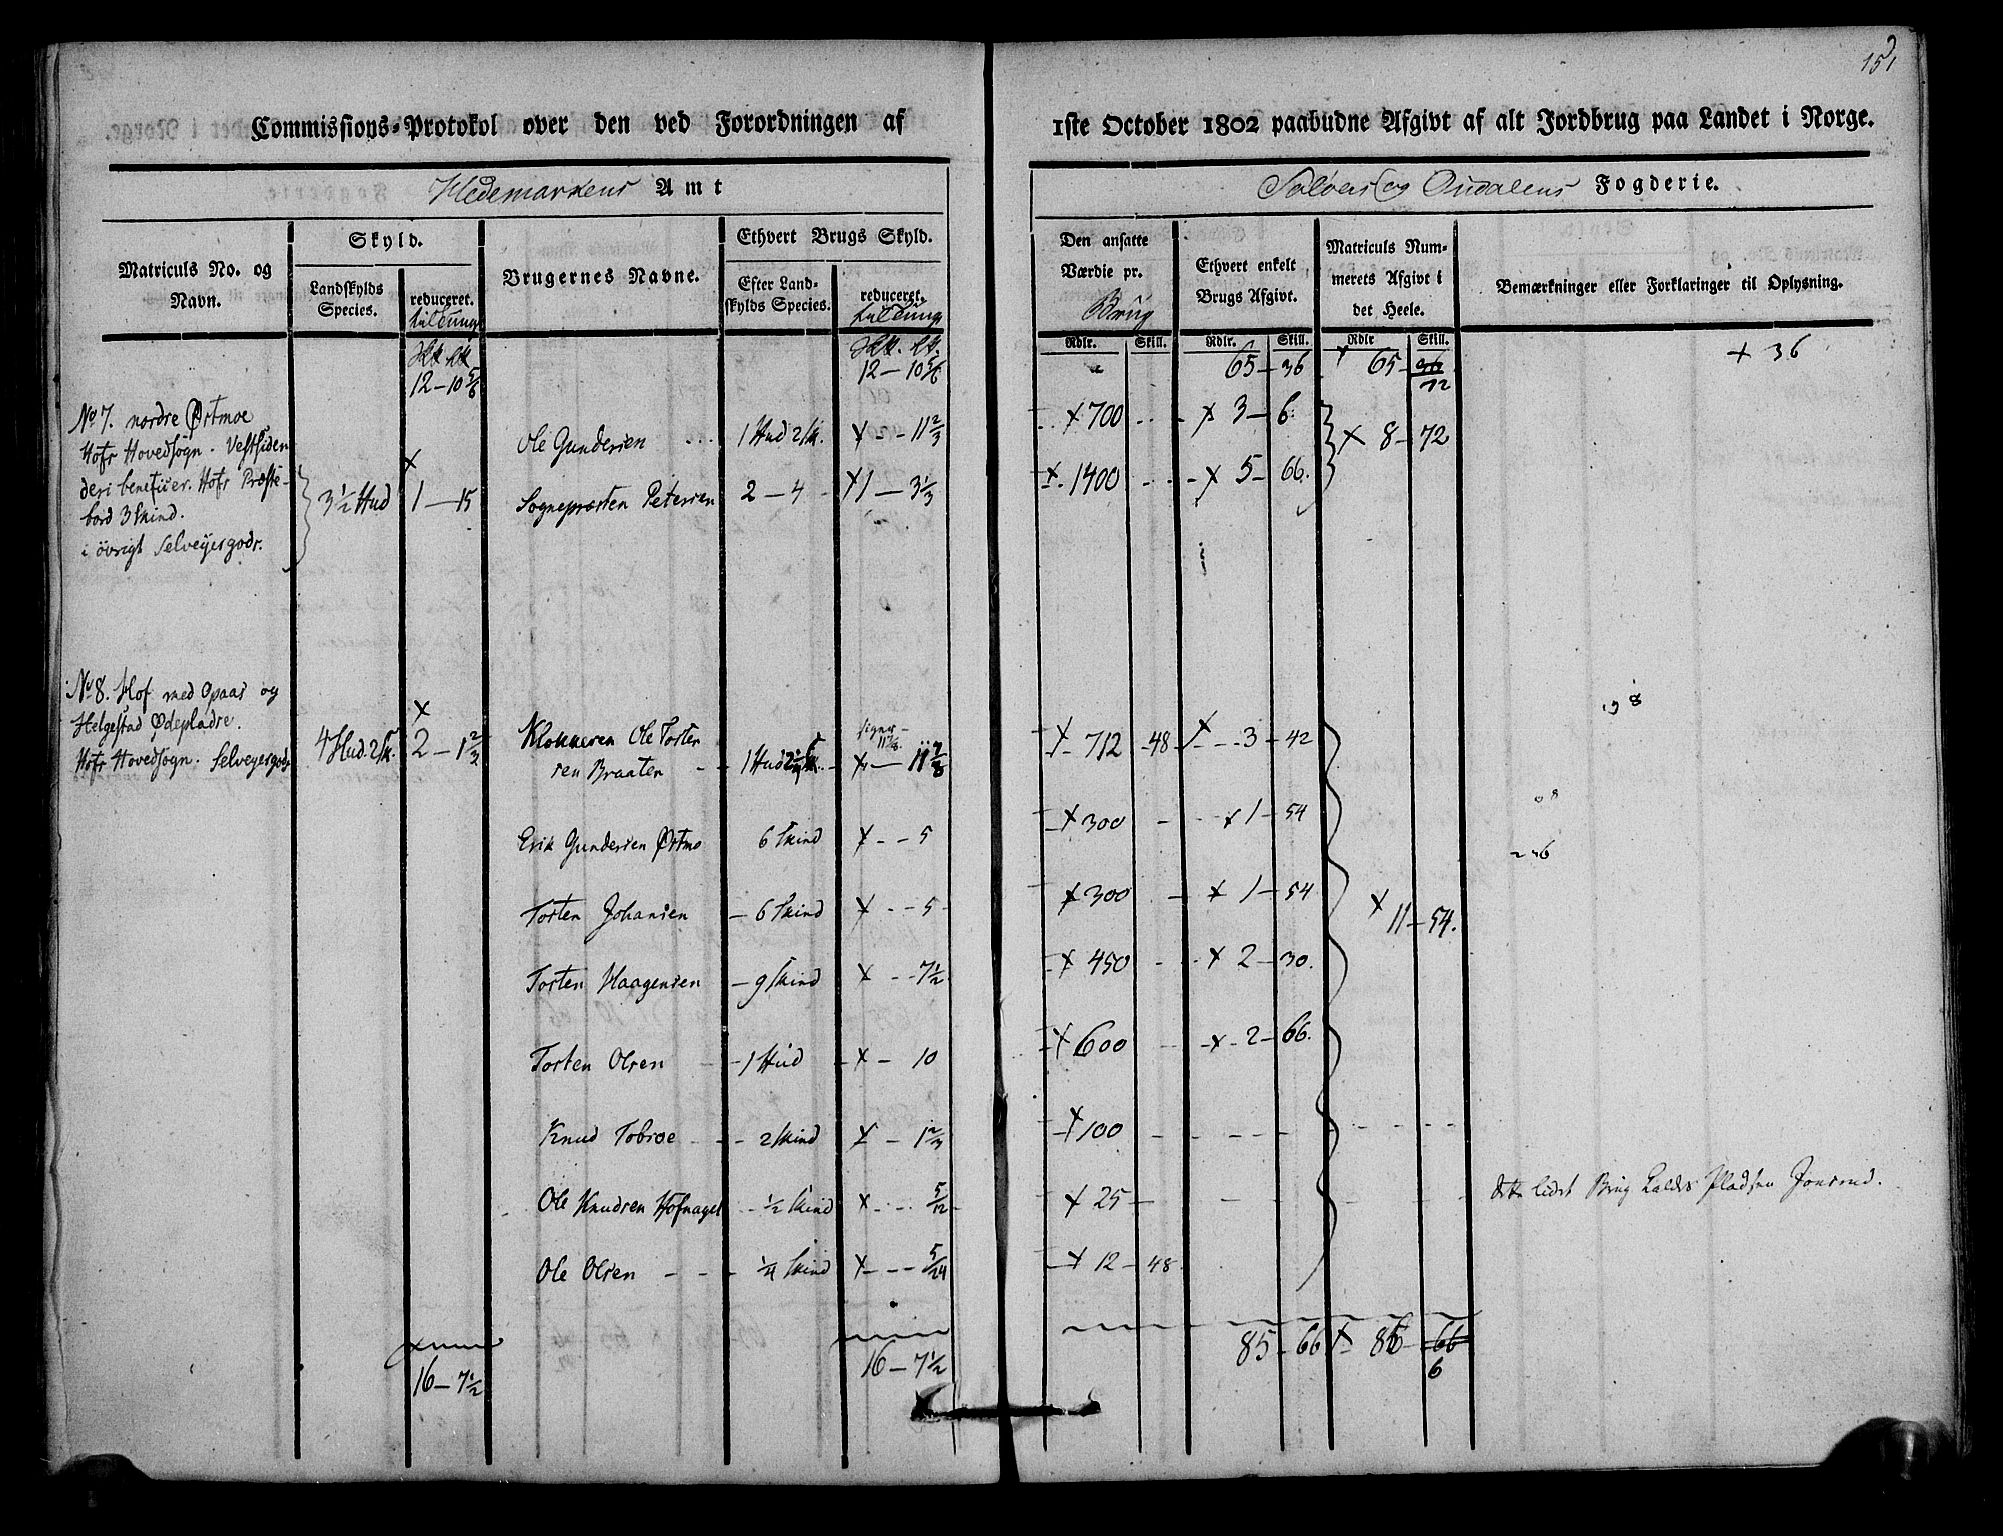 151
Commissions-Protokol over den ved Forordningen af 1ste October 1802 paabudne Afgivt af alt Jordbrug paa Landet i Norge.
Hedemarkens Amt
Soløers og Oudalens Fogderie.
Matriculs No. og Navn.
Skyld.
Landskylds Species.
reduceret.
Brugernes Navne.
Ethvert Brugs Skyld.
Efter Landskylds Species.
reduceret.
Den ansatte Værdie pr. Brug
Ethvert enkelt Brugs Afgivt.
Matriculs Nummerets Afgivt i det Heele.
Bemærkninger eller Forklaringer til Oplysning.
Rdlr. Skill. Rdlr. Skill. Rdlr Skill.
12 — 10 5/6 12 — 10 5/6 65 — 36 + 65 — 36 72 + 36
No 7. nordre Østmoe
Hofs Hovedsogn. Vestsiden
deri beneficer. Hofs Præste-
bord 3 Skind.
i övrigt Selveyergods.
3½ Hud + 1 — 15
Ole Gundersen 1 Hud 2 sk. + - - 11 2/3 + 700 + 3 — 6. + 8 — 72
Sognepræsten Petersen 2 — 4 + 1 — 3 1/3 + 1400 + 5 — 66.
No 8. Hof med Opaas og
Helgestad Ødepladse.
Hofs Hovedsogn. Selveyergods
4 Hud. 2 sk. + 2 — 1 2/3
Klokkeren Ole Torster
sen Braaten 1 Hud 2¼ sk. + — 11 7/8 + 712 - 48 + 3 — 42
Erik Gundersen Østmo 6 Skind + - - 5 + 300 + 1 — 54
Torsten Johansen — 6 Skind + - - 5 + 300 + 1 — 54 + 11 — 54.
Torsten Haagensen — 9 Skind + - - 7½ + 450 + 2 — 30.
Torsten Olsen - 1 Hud + — 10 + 600 + 2 — 66.
Knud Tobroe - - - 2 Skind + — 1 2/3 + 100
Ole Knudsen Hofnaget - ½ Skind + - - 5/12 + 25 dette lidet Brug kaldes Pladsen Jonsrud.
Ole Olsen - - - ¼ Skind + - - - 5/24 + 12 — 48
16 — 7½ 16 — 7½ 85 — 66 + 86 — 66 6